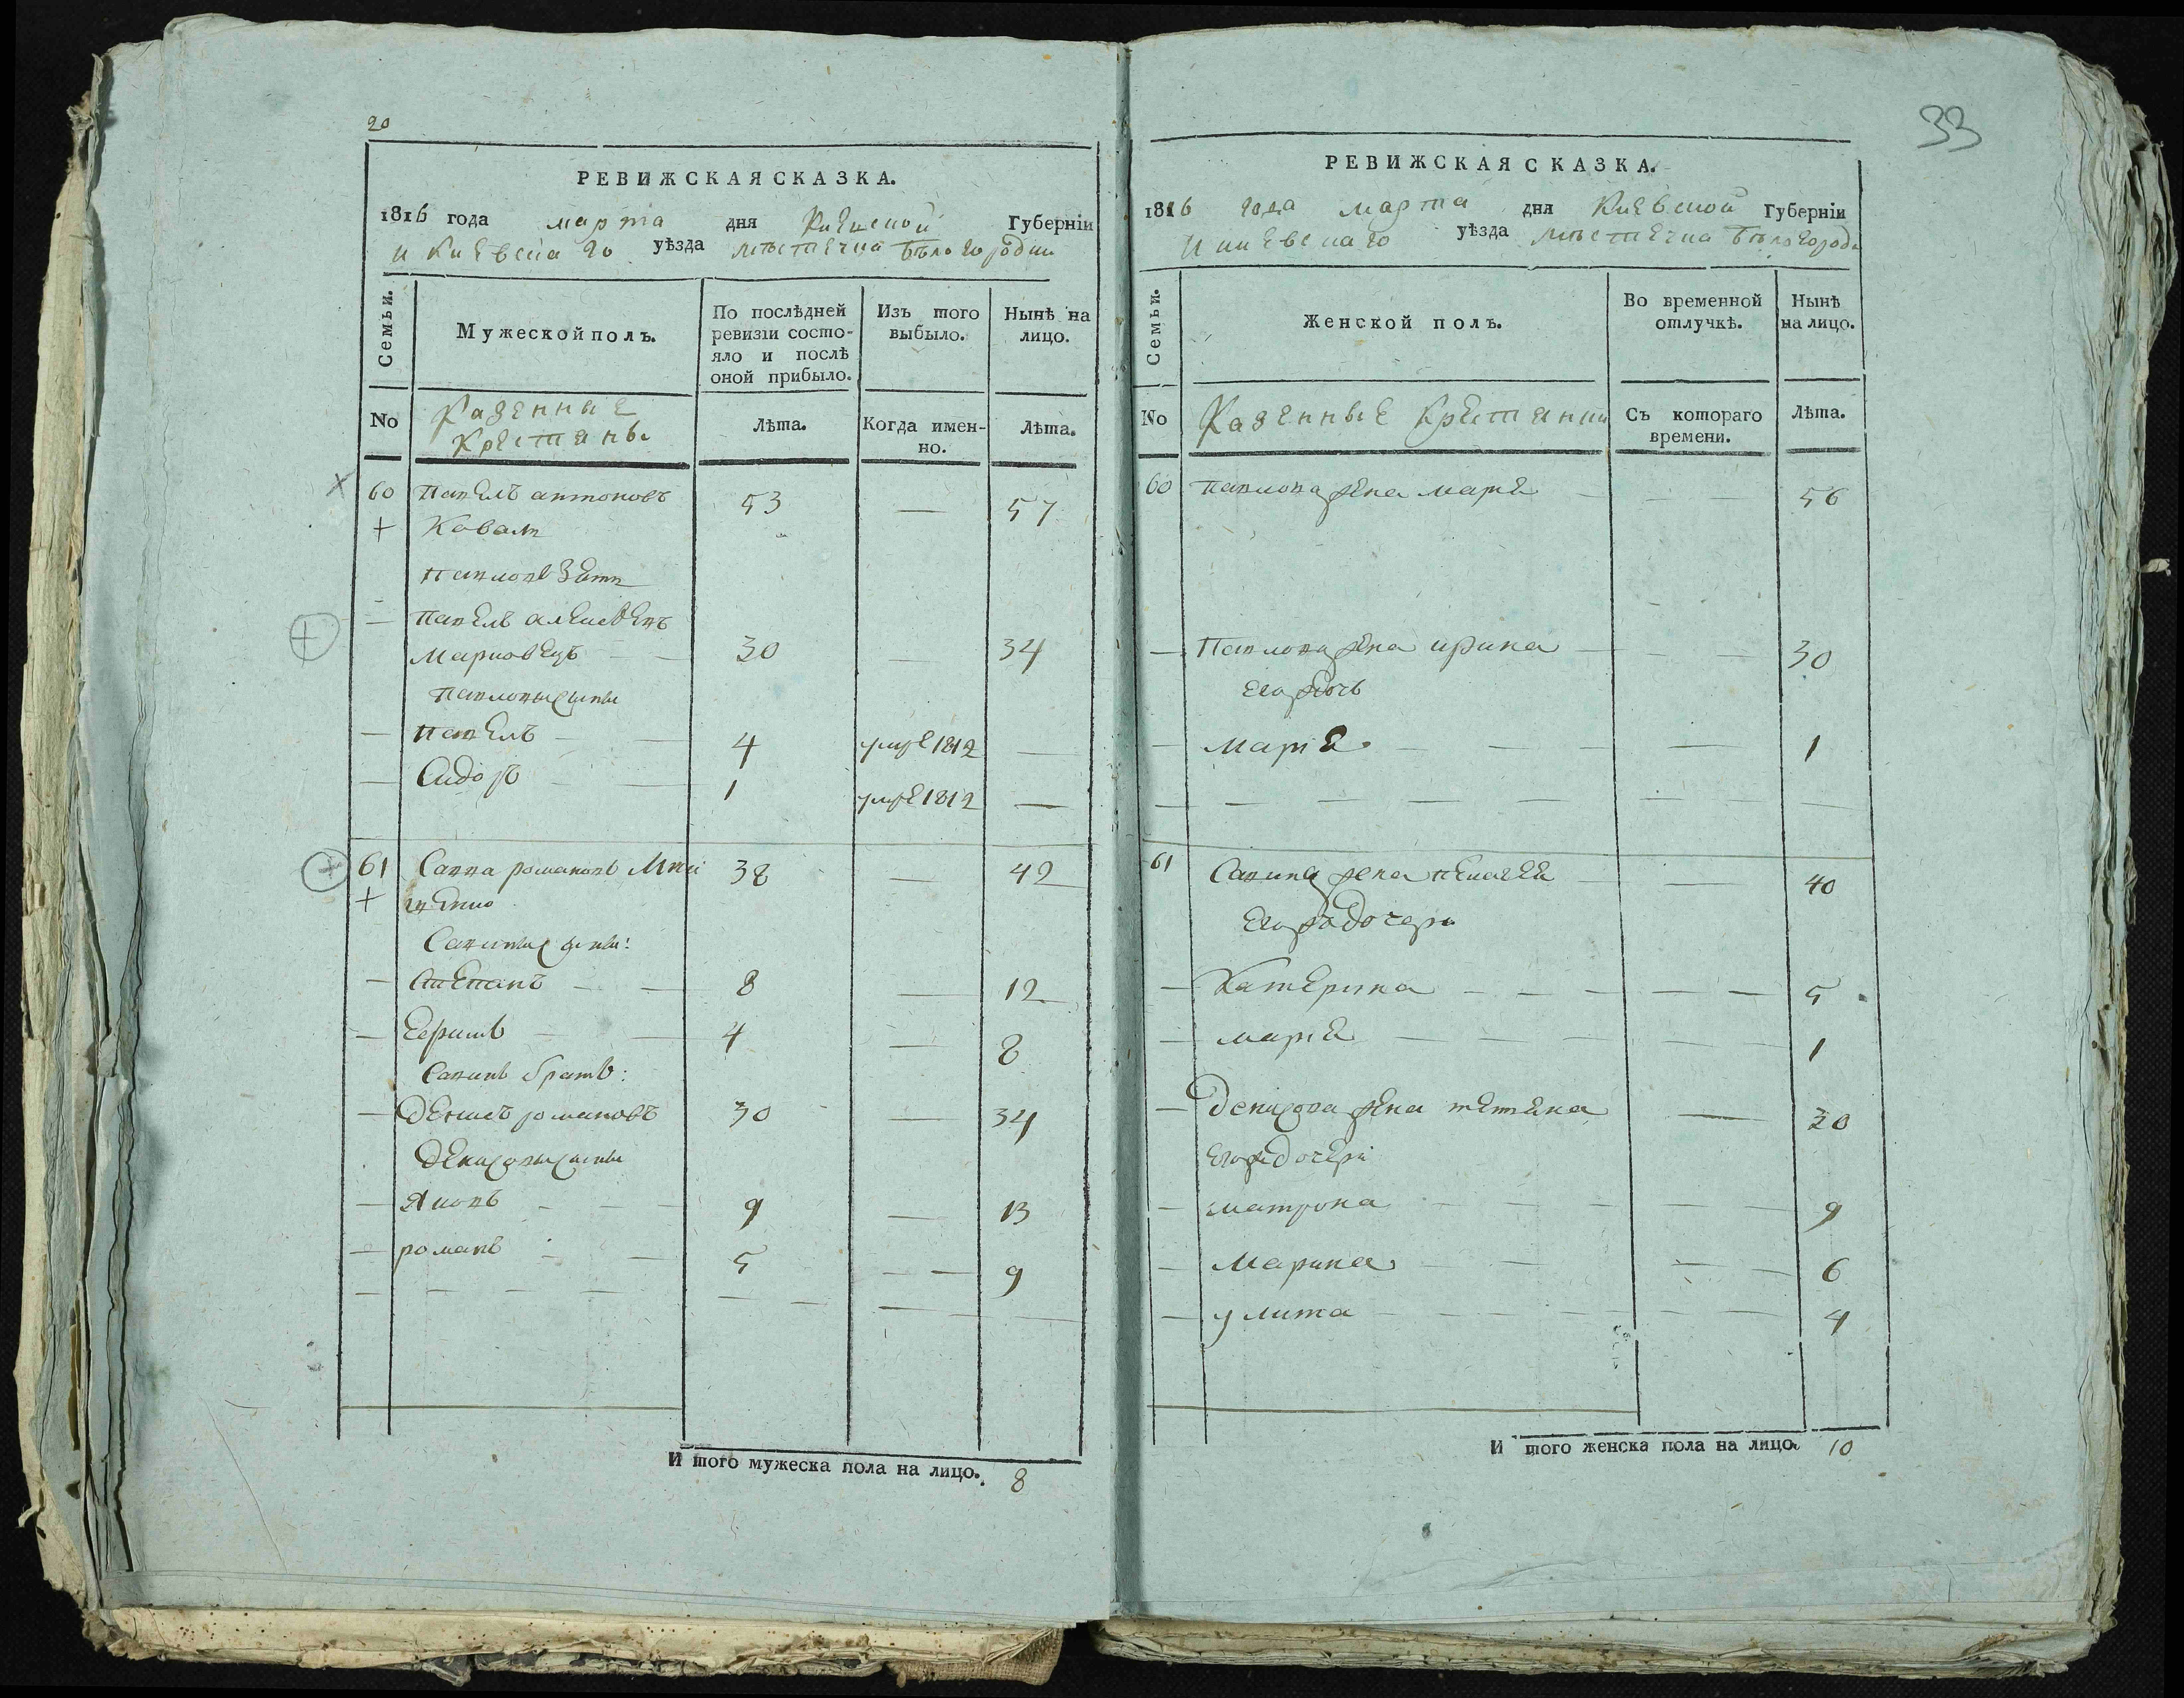 20
РЕВИЖСКАЯ СКАЗКА.
1816 года марта дня Киевской Губернїи
и Киевскаго уѣзда мѣстечка Бѣлогородки
Семьи.
Мужеской полъ.
По послѣдней ревизїи состо-
яло и послѣ
оной прибыло.
Изъ того выбыло.
Нынѣ на лицо.
No
Казенные
Крестяны
Лѣта.
Когда имен-
но.
Лѣта.
60 Павелъ антоновъ 53 — 57
Коваль
Павловъ Зеть
— Павелъ алексеевъ
30 — 34
Павловы сыны
— Павелъ — — 4 умре 1812 —
— Сидоръ — — 1 умре 1812 —
61 Савва романовъ 38 — 42
Савины сыны:
— Степанъ — — 8 — 12
— — 4 — 8
Савинъ братъ:
— Денисъ романовъ 30 — 34
Денисовы сыны
— Яковъ — — — 9 — 13
— романъ — — 5 — — 9
И того мужеска пола на лицо. 8
33
РЕВИЖСКАЯ СКАЗКА.
1816 года марта дня Киевской Губернїи
и киевскаго уѣзда мѣстечка Бѣлогородки
Семьи.
Женской полъ.
Во временной
отлучкѣ.
Нынѣ
на лицо.
No
Казенные Крестянки
Съ котораго
времени.
Лѣта.
60 Павлова жена марїя — — — 56
— Павлова жена ирина — — — 30
его дочь
— Марїя — — — 1
61 Савина жена пелагея — — 40
его дочери
— Катерина — — — — — 5
— марїя — — — — — 1
— Денисова жена татяна — 30
его дочери
— матрона — — — — — 9
— Марина — — — — 6
— улита — — — — — 4
И того женска пола на лицо. 10